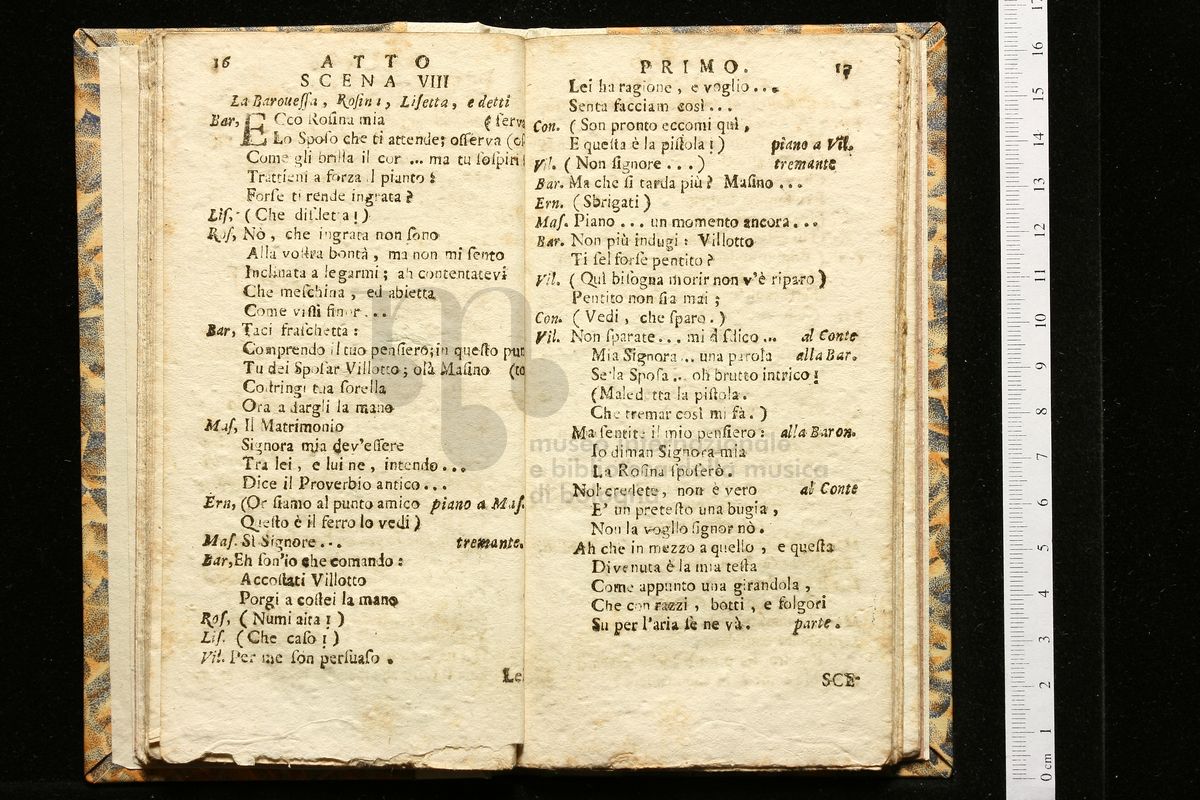 16 ATTO
SCENA VIII
La Baronessa, Rosina, Lisetta, e detti
Bar, ECco Rosina mia
Lo Sposo che ti attende; osserva
Come gli brilla il cor ... ma tu sospiri
Trattieni a forza il pianto:
Forse ti rende ingrata?
Lis. (Che disdetta!)
Ros, Nò, che ingrata non sono
Alla vostra bontà, ma non mi sento
Inclinata a legarmi; ah contentatevi
Che meschina, ed abietta
Come vissi finor...
Bar, Taci fraschetta:
Comprendo il tuo pensiero; in questo
Tu dei Sposar Villotto; olà Masino
Costringi tua sorella
Ora a dargli la mano
Mas, Il Matrimonio
Signora mia dev'essere
Tra lei, e lui ne, intendo...
Dice il Proverbio antico...
Ern, (Or siamo al punto amico piano a Mas.
Questo è il ferro lo vedi)
Mas. Sì Signore... tremante.
Bar, Eh son'io che comando:
Accostati Villotto
Porgi a costei la mano
Ros, (Numi aita!)
Lis. (Che caso!)
Vil. Per me son persuaso.
Le
PRIMO. 17
Lei ha ragione, e voglio...
Senta facciam così...
Con. (Son pronto eccomi quì,
E questa è la pistola!) piano a Vil.
Vil. (Non signore...) tremante
Bar. Ma che si tarda più? Masino...
Ern. (Sbrigati)
Mas. Piano... un momento ancora...
Bar. Non più indugi: Villotto
Ti sei forse pentito?
Vil. (Quì bisogna morir non v'è riparo)
Pentito non sia mai;
Con. (Vedi, che sparo.)
Vil. Non sparate... mi disdico... al Conte
Mia Signora... una parola alla Bar.
Se la Sposa... oh brutto intrico!
(Maledetta la pistola.
Che tremar così mi fà.)
Ma sentite il mio pensiero: alla Baron.
Io diman Signora mia
La Rosina sposerò.
Nol credete, non è vero al Conte
E' un pretesto una bugia,
Non la voglio signor nò.
Ah che in mezzo a quello, e questa
Divenuta è la mia testa
Come appunto una girandola,
Che con razzi, botti, e folgori
Su per l'aria se ne và. parte.
SCE-
museo internazionale
e biblioteca della musica
di bologna
17
16
15
14
13
12
11
10
9
8
7
6
5
4
3
2
1
0 cm